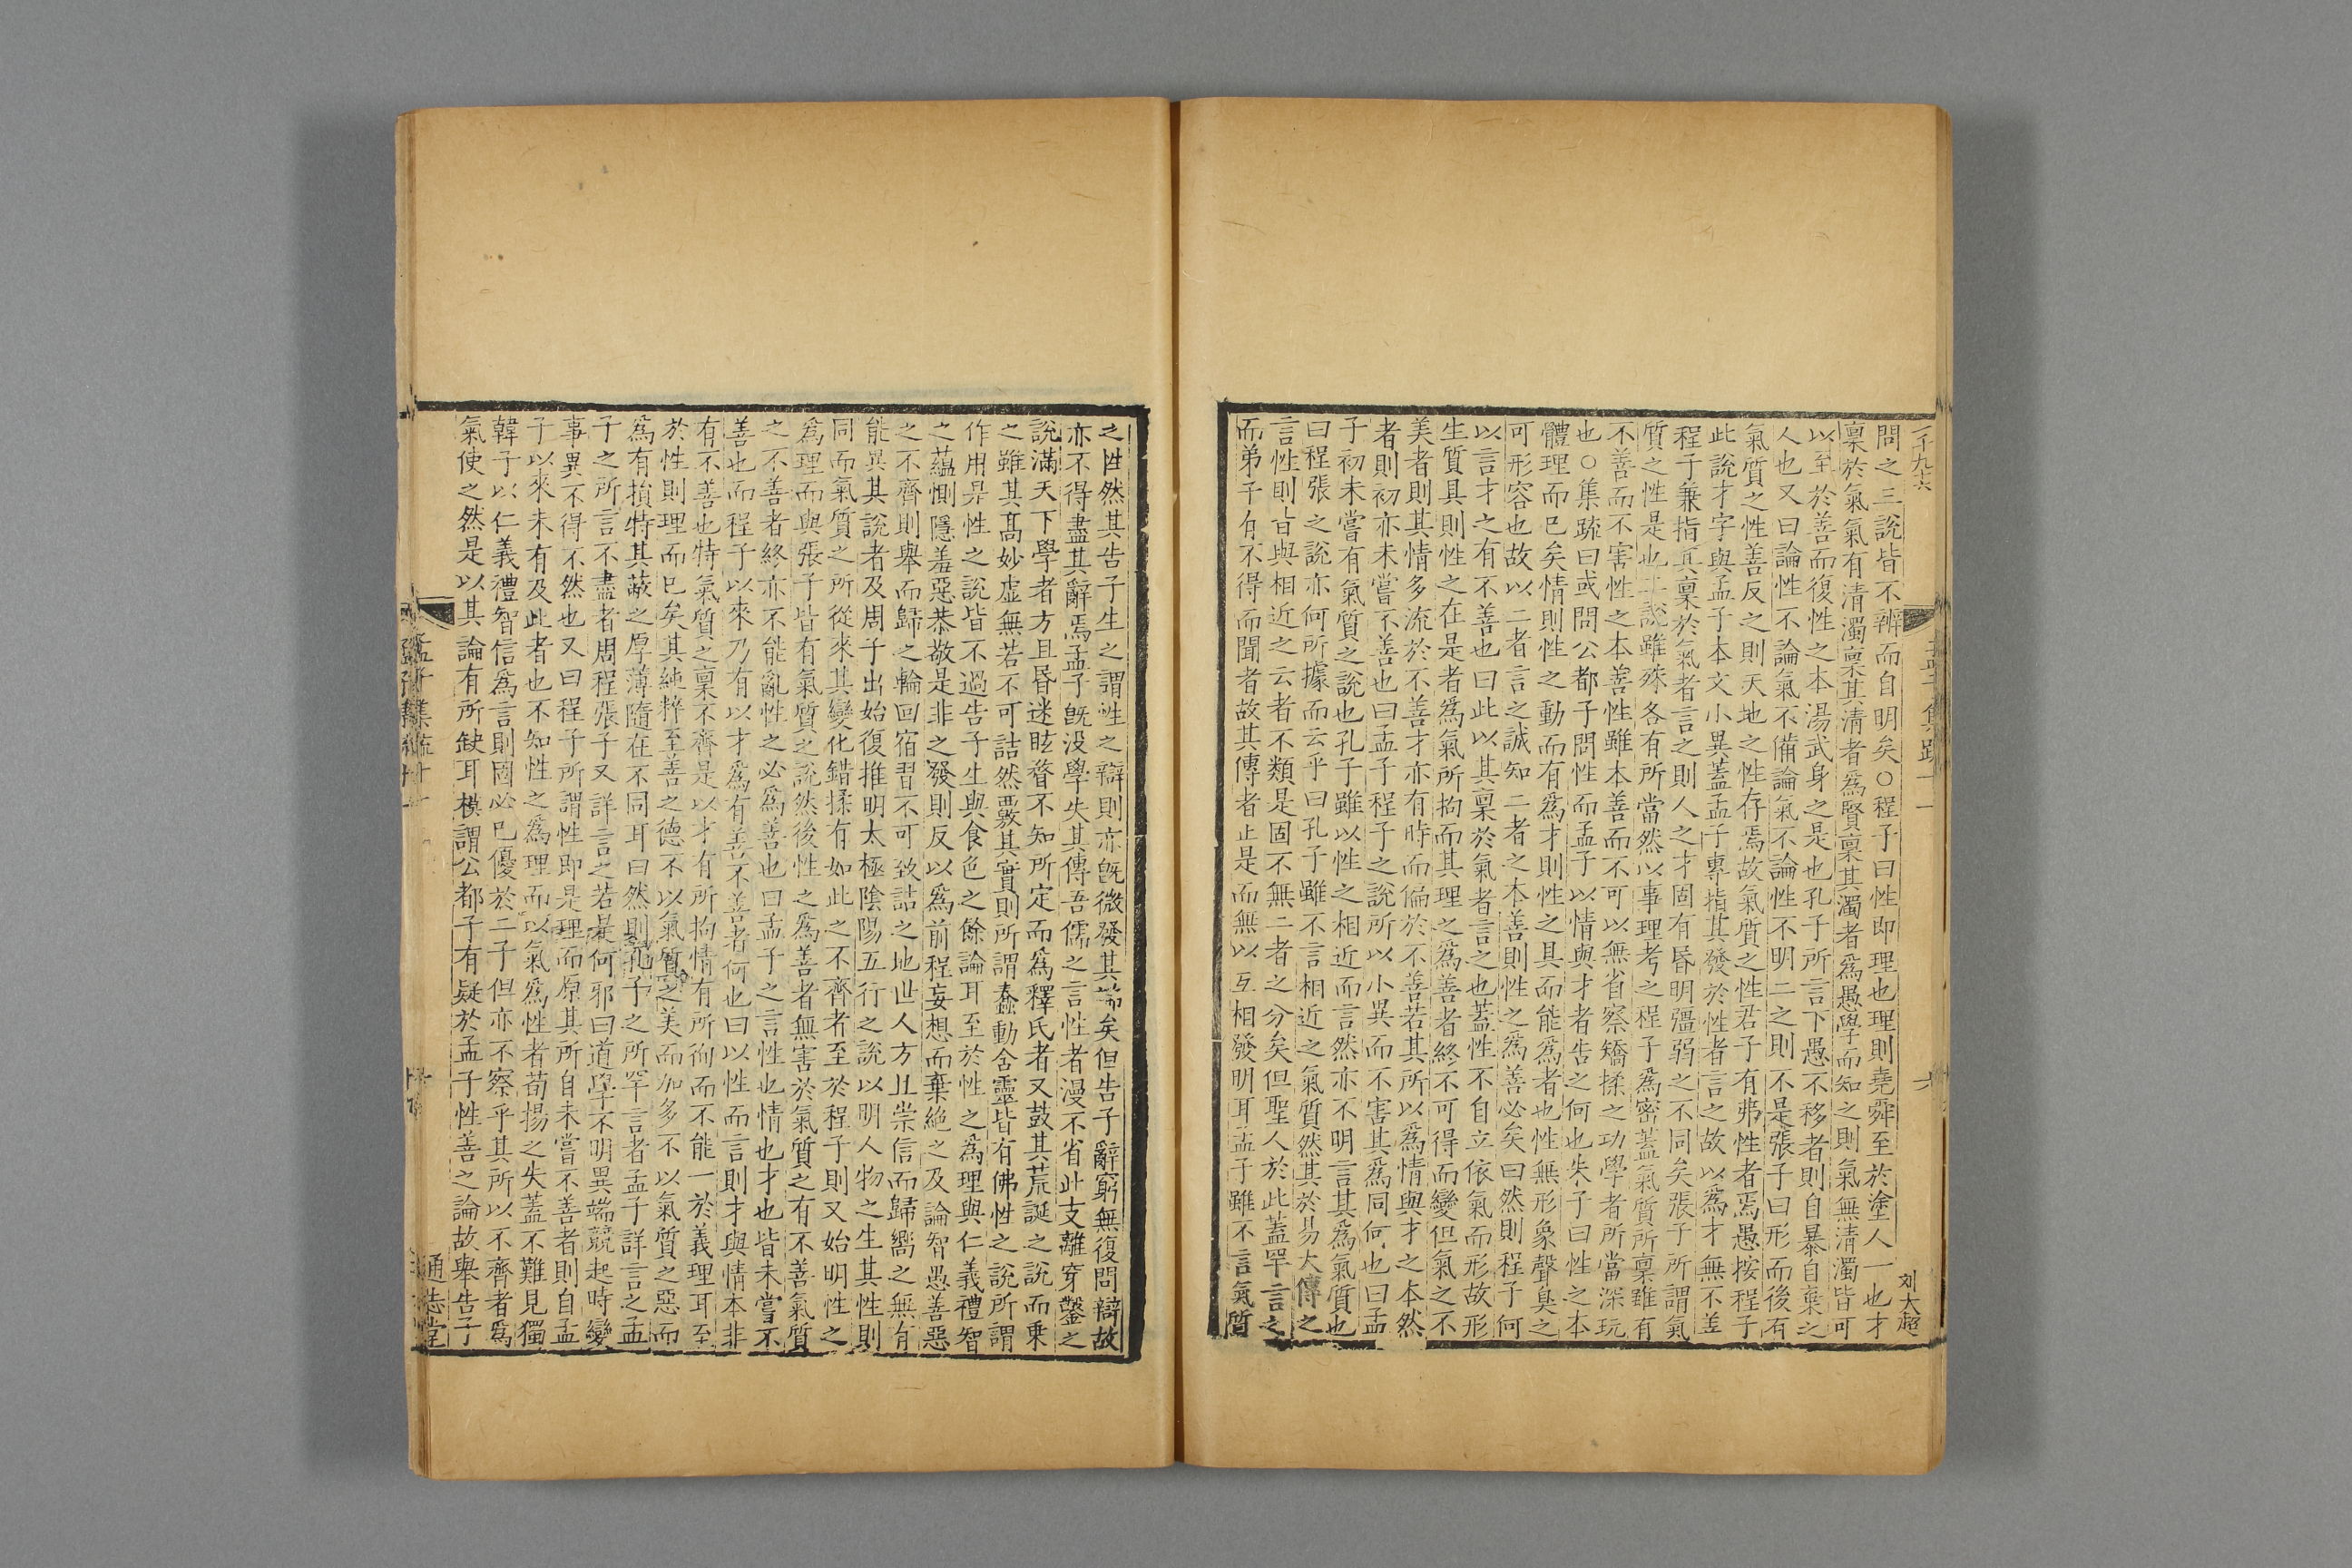 問之三說皆不辨而自明矣○程子曰性即理也理則堯舜至於塗人一也才
稟於氣氣有清濁稟其清者爲賢稟其濁者爲愚學而知之則氣無清濁皆可
以至於善而復性之本湯武身之是也孔子所言下愚不移者則自暴自棄之
人也又曰論性不論氣不備論氣不論性不明二之則不是張子曰形而後有
氣質之性善反之則天地之性存焉故氣質之性君子有弗性者焉愚按程子
此說才字與孟子本文小異蓋孟子專指其發於性者言之故以爲才無不善
程子兼指其稟於氣者言之則人之才固有昏明彊弱之不同矣張子所謂氣
質之性是也二說雖殊各有所當然以事理考之程子爲密蓋氣質所稟雖有
不善而不害性之本善性雖本善而不可以無省察矯揉之功學者所當深玩
也○集疏曰或問公都子問性而孟子以情與才者告之何也朱子曰性之本
體理而已矣情則性之動而有爲才則性之具而能爲者也性無形象聲臭之
可形容也故以二者言之誠知二者之本善則性之爲善必矣曰然則程子何
以言才之有不善也曰此以其稟於氣者言之也蓋性不自立依氣而形故形
生質具則性之在是者爲氣所拘而其理之爲善者終不可得而變但氣之不
美者則其情多流於不善才亦有時而偏於不善若其所以爲情與才之本然
者則初亦未嘗不善也曰孟子程子之說所以小異而不害其爲同何也曰孟
子初未嘗有氣質之說也孔子雖以性之相近而言然亦不明言其爲氣質也
曰程張之說亦何所據而云乎曰孔子雖不言相近之氣質然其於易大傳之
言性則皆與相近之云者不類是固不無二者之分矣但聖人於此蓋罕言之
而弟子有不得而聞者故其傳者止是而無以互相發明耳孟子雖不言氣質
二千九十六
孟子集疏十一
六
刘大超
之性然其告子生之謂性之辯則亦旣微發其端矣但告子辭窮無復問辯故
亦不得盡其辭焉孟子旣没學失其傳吾儒之言性者漫不省此支離穿鑿之
說滿天下學者方且昏迷眩瞀不知所定而爲釋氏者又鼓其荒誕之說而乗
之雖其髙妙虛無若不可詰然覈其實則所謂蠢動含靈皆有佛性之說所謂
作用是性之說皆不過告子生與食色之餘論耳至於性之爲理與仁義禮智
之蘊惻隱羞惡恭敬是非之發則反以爲前程妄想而棄絶之及論智愚善惡
之不齊則舉而歸之輪回宿習不可致詰之地世人方且崇信而歸嚮之無有
能異其說者及周子出始復推明太極陰陽五行之說以明人物之生其性則
同而氣質之所從來其變化錯揉有如此之不齊者至於程子則又始明性之
爲理而與張子皆有氣質之說然後性之爲善者無害於氣質之有不善氣質
之不善者終亦不能亂性之必爲善也曰孟子之言性也情也才也皆未嘗不
善也而程子以來乃有以才爲有善不善者何也曰以性而言則才與情本非
有不善也特氣質之稟不齊是以才有所拘情有所徇而不能一於義理耳至
於性則理而已矣其純粹至善之德不以氣質之美而加多不以氣質之惡而
爲有損特其蔽之厚薄隨在不同耳曰然則孔子之所罕言者孟子詳言之孟
子之所言不盡者周程張子又詳言之若是何邪曰道學不明異端競起時變
事異不得不然也又曰程子所謂性即是理而原其所自未嘗不善者則自孟
子以來未有及此者也不知性之爲理而以氣爲性者荀揚之失蓋不難見獨
韓子以仁義禮智信爲言則固必已優於二子但亦不察乎其所以不齊者爲
氣使之然是以其論有所缺耳模謂公都子有疑於孟子性善之論故舉告子
孟子集疏十一
通志堂